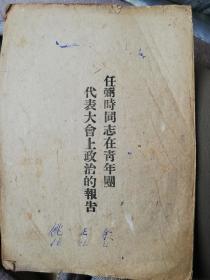 任弼時同志在青年團
代表大會上政治的報告